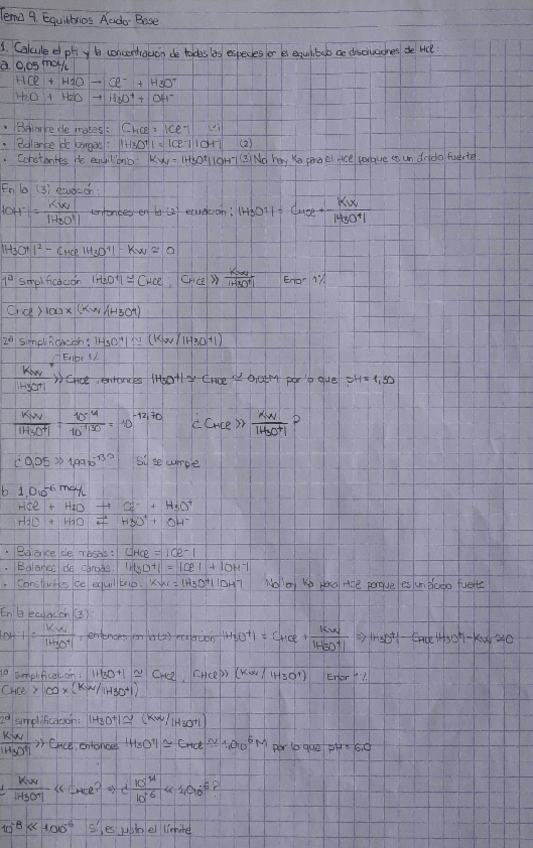 Tema 9. Equilibrios Ácido Base
1. Calcule el pH y la concentración de todas las especies en el equilibrio de disoluciones de HCl:
a. 0,05 mol/L
HCl + H2O → Cl⁻ + H3O⁺
H2O + H2O → H3O⁺ + OH⁻
• Balance de masas: CHCl = |Cl⁻| (1)
• Balance de cargas: |H3O⁺| = |Cl⁻| |OH⁻| (2)
• Constantes de equilibrio: Kw = |H3O⁺| |OH⁻| (3) No hay Ka para el HCl porque es un ácido fuerte.
En la (3) ecuación:
|OH⁻| = Kw/|H3O⁺| entonces en la (2) ecuación: |H3O⁺| = CHCl + Kw/|H3O⁺|
|H3O⁺|² - CHCl |H3O⁺| - Kw = 0
1ª simplificación |H3O⁺| ≃ CHCl, CHCl >> Kw/|H3O⁺| Error 1%
CHCl > 100 x (Kw/|H3O⁺|)
2ª simplificación: |H3O⁺| ≃ (Kw/|H3O⁺|)
Error 1%
Kw/|H3O⁺| >> CHCl, entonces |H3O⁺| ≃ CHCl ≃ M por lo que pH = 1,30
Kw/|H3O⁺| = 10⁻¹⁴/10⁻¹'³⁰ = 10⁻¹²'⁷⁰ ¿CHCl >> Kw/|H3O⁺|?
¿0,05 >> Sí se cumple
b. 1,0·10⁻⁶ mol/L
HCl + H2O → Cl⁻ + H3O⁺
H2O + H2O ⇄ H3O⁺ + OH⁻
• Balance de masas: CHCl = |Cl⁻|
• Balance de cargas: |H3O⁺| = |Cl⁻| + |OH⁻|
• Constantes de equilibrio: Kw = |H3O⁺| |OH⁻| No hay Ka para HCl porque es un ácido fuerte
En la ecuación (3):
|OH⁻| = Kw/|H3O⁺|, entonces en la (2) ecuación |H3O⁺| = CHCl + Kw/|H3O⁺| ⇒ |H3O⁺| - CHCl |H3O⁺| - Kw = 0
1ª simplificación: |H3O⁺| ≃ CHCl, CHCl >> (Kw/|H3O⁺|) Error 1%
CHCl > 100 x (Kw/|H3O⁺|)
2ª simplificación: |H3O⁺| ≃ (Kw/|H3O⁺|)
Kw/|H3O⁺| >> CHCl, entonces |H3O⁺| ≃ CHCl ≃ 1,0·10⁻⁶ M por lo que pH = 6,0
¿Kw/|H3O⁺| << CHCl? ⇒ ¿10⁻¹⁴/10⁻⁶ << 1,0·10⁻⁶?
10⁻⁸ << 1,0·10⁻⁶ Sí, es justo el límite